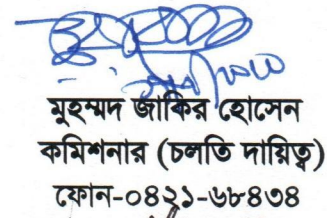 মুহম্মদ জাকির হোসেন
কমিশনার (চলতি দায়িত্ব)
ফোন-০৪২১-৬৮৪৩৪